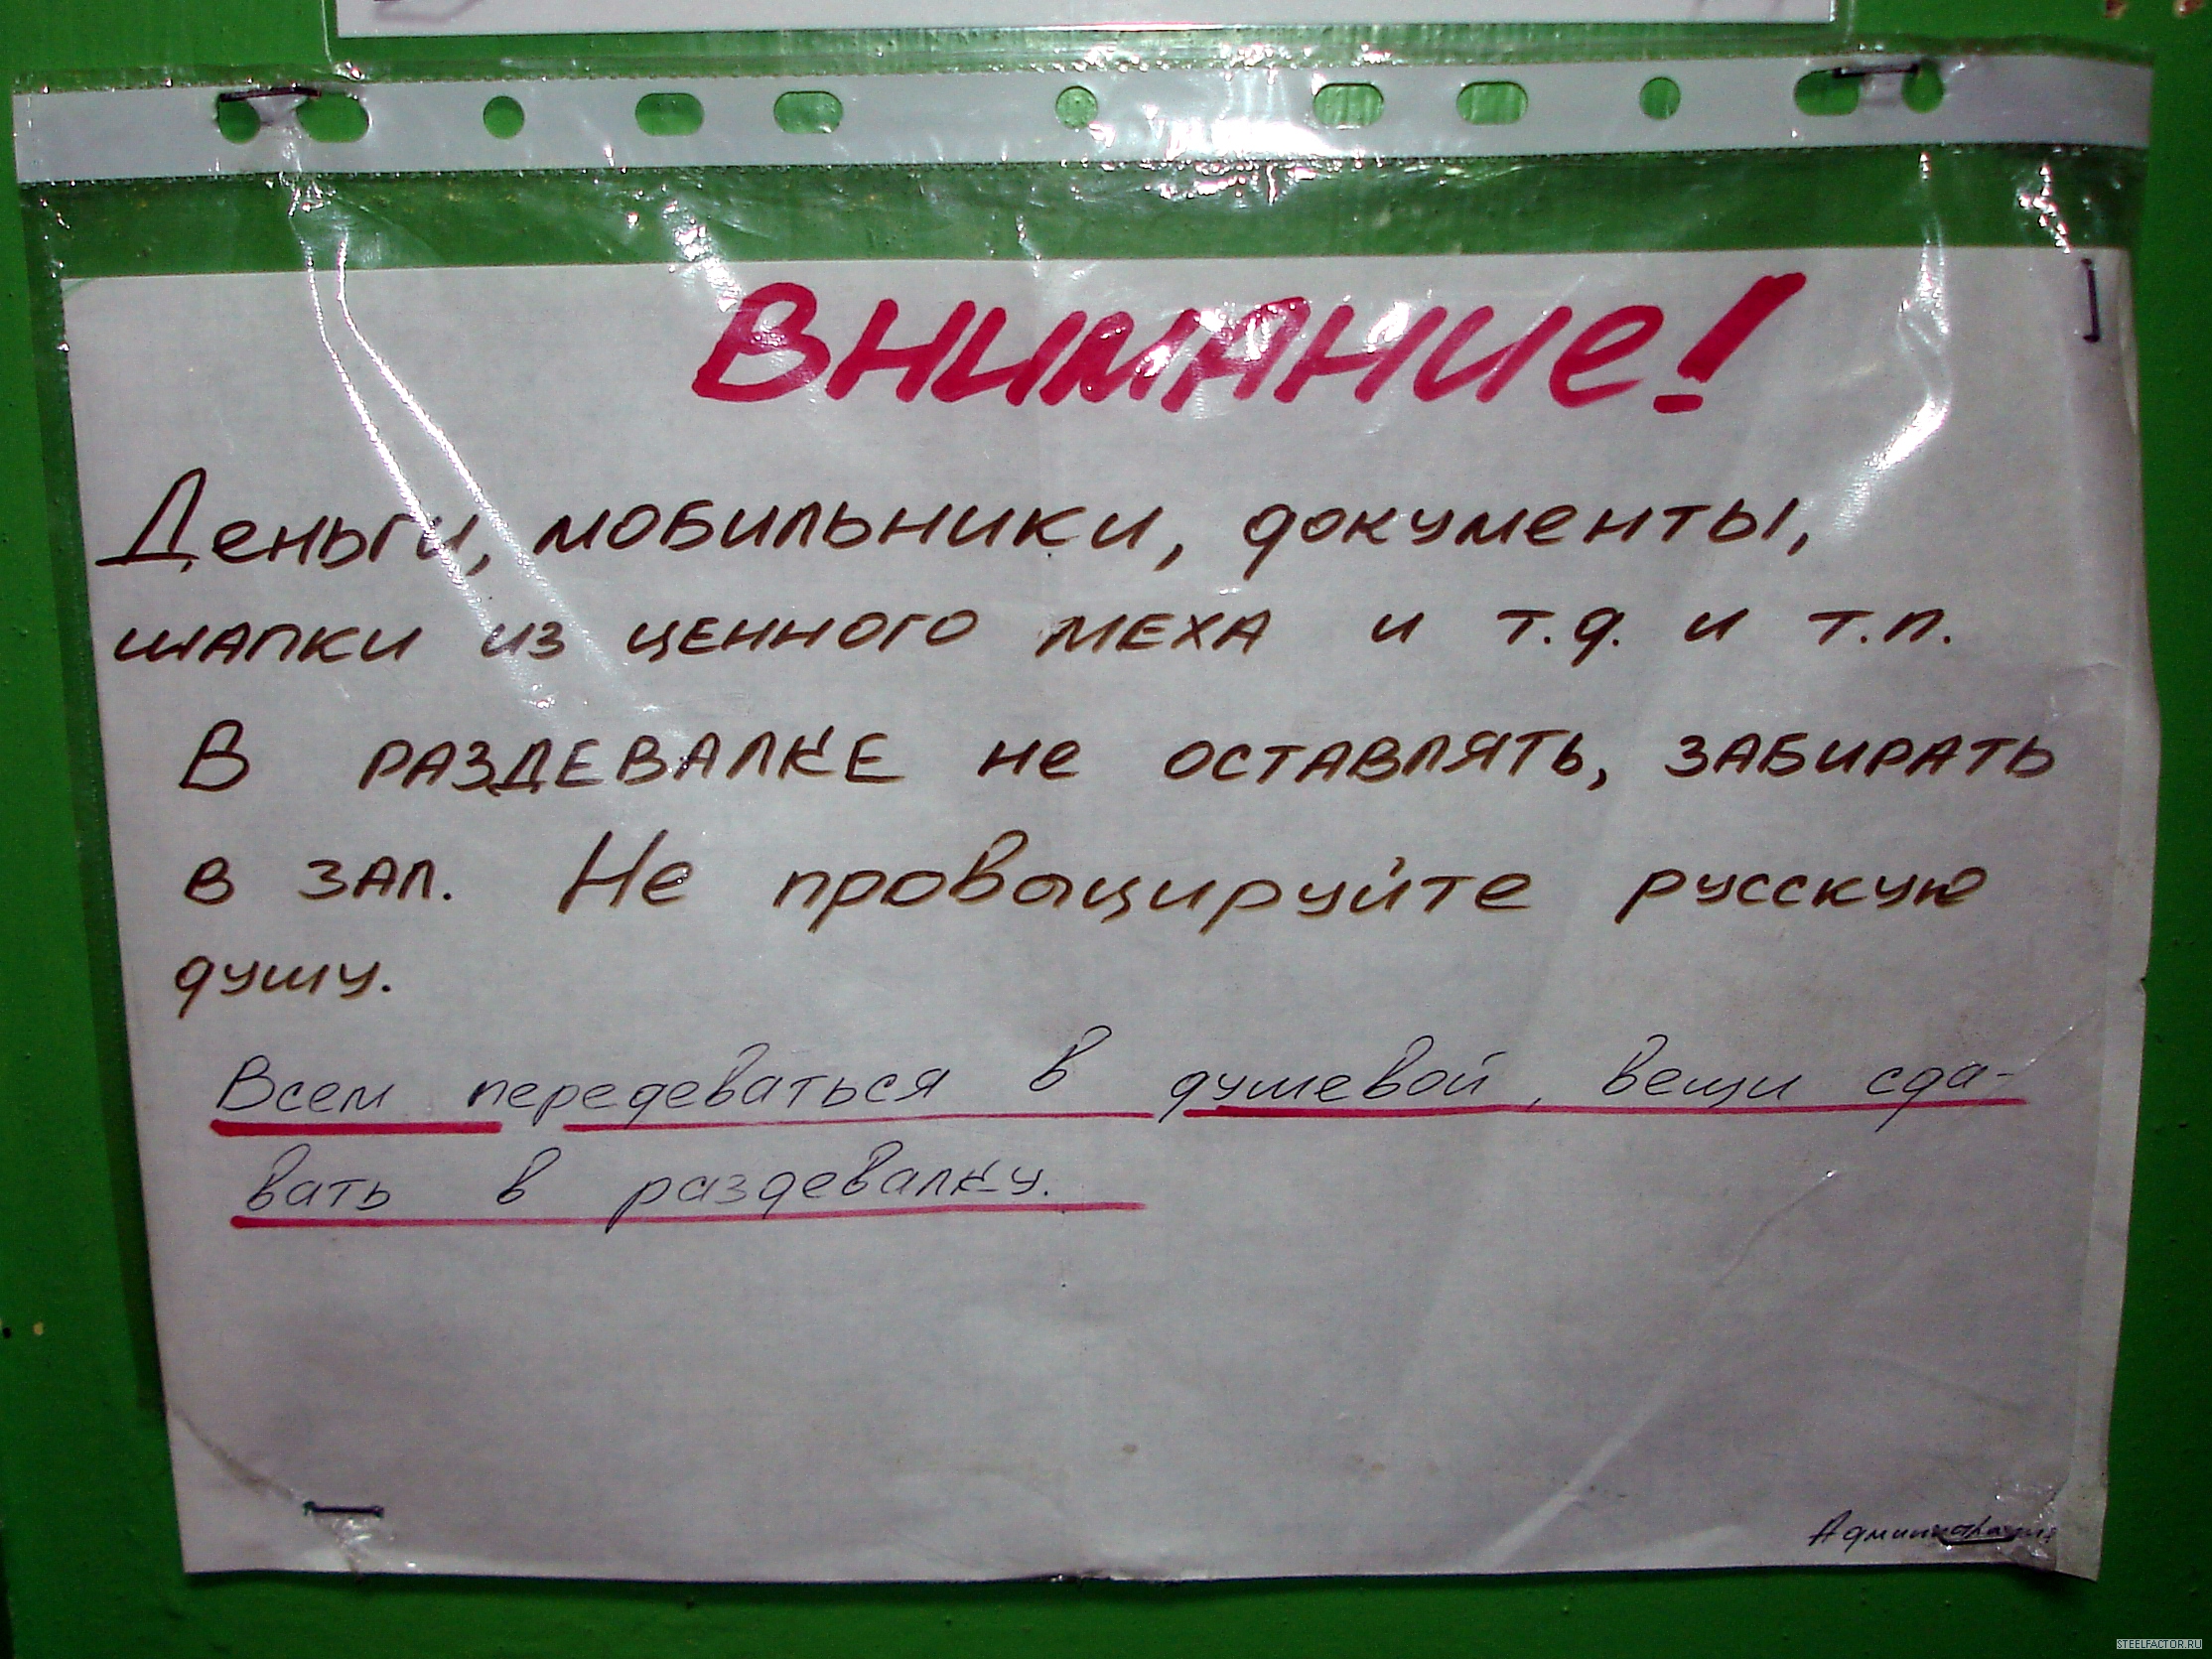 Внимание!
Деньги, мобильники, документы,
шапки из ценного меха и т.д. и т.п.
В раздевалке не оставлять, забирать
в зал. Не провоцируйте русскую
душу.
Всем передеваться в душевой, вещи сда-
вать в раздевалку.
Администрация
STEELFACTOR.RU